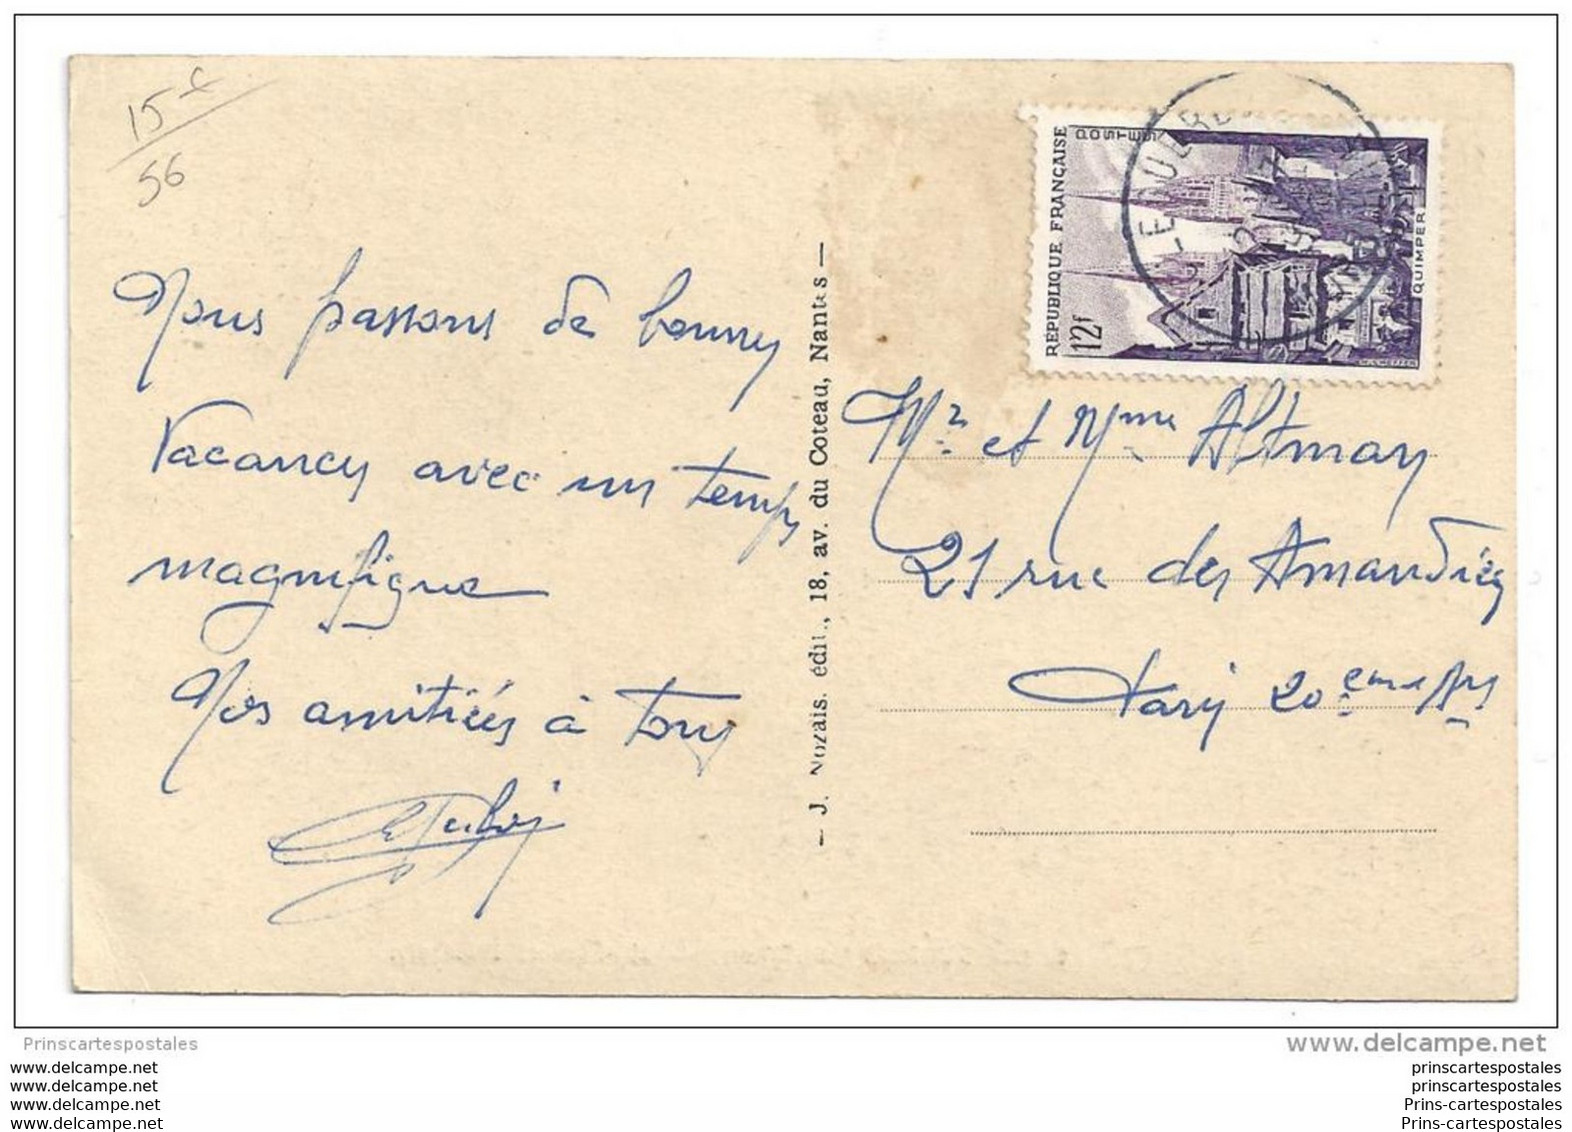 15 €
56
Nous passons de bonnes
Vacances avec un temps
magnifique
Nos amitiés à tous
— J. Nozais. édit., 18, av. du Coteau, Nantes —
RÉPUBLIQUE FRANÇAISE
POSTES
12f
QUIMPER
Mr et Mme Altmay
21 rue des Amandiers
Paris 20eme Ars
Prinscartespostales
www.delcampe.net
www.delcampe.net
www.delcampe.net
www.delcampe.net
www.delcampe.net
prinscartespostales
prinscartespostales
Prins-cartespostales
Prins-cartespostales